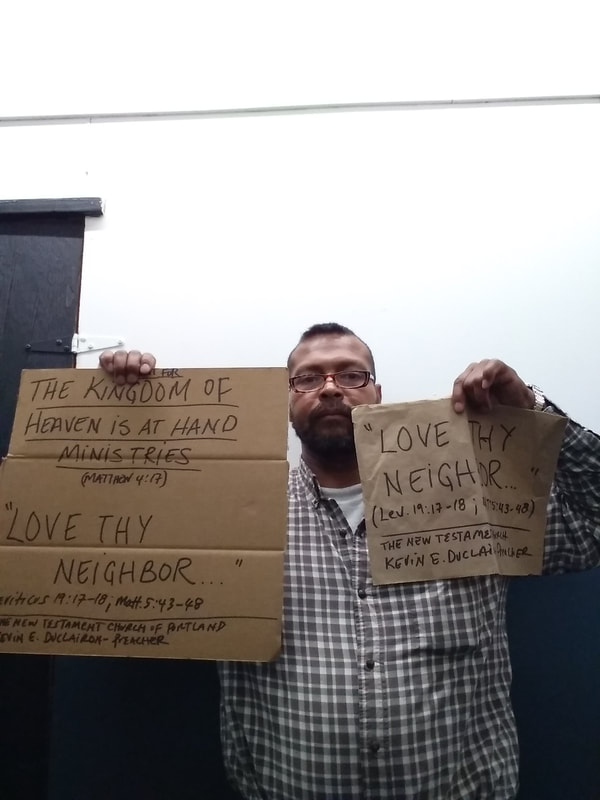 FOR
THE KINGDOM OF
HEAVEN IS AT HAND
MINISTRIES
(MATTHEW 4:17)
"LOVE THY
NEIGHBOR..."
eviticus 19:17-18; Matt. 5:43-48
HE NEW TESTAMENT CHURCH OF PORTLAND
KEVIN E. DUCLAIROA- PREACHER
"LOVE THY
NEIGHBOR..."
(Lev. 19:17-18; 5:43-48)
THE NEW
KEVIN E.